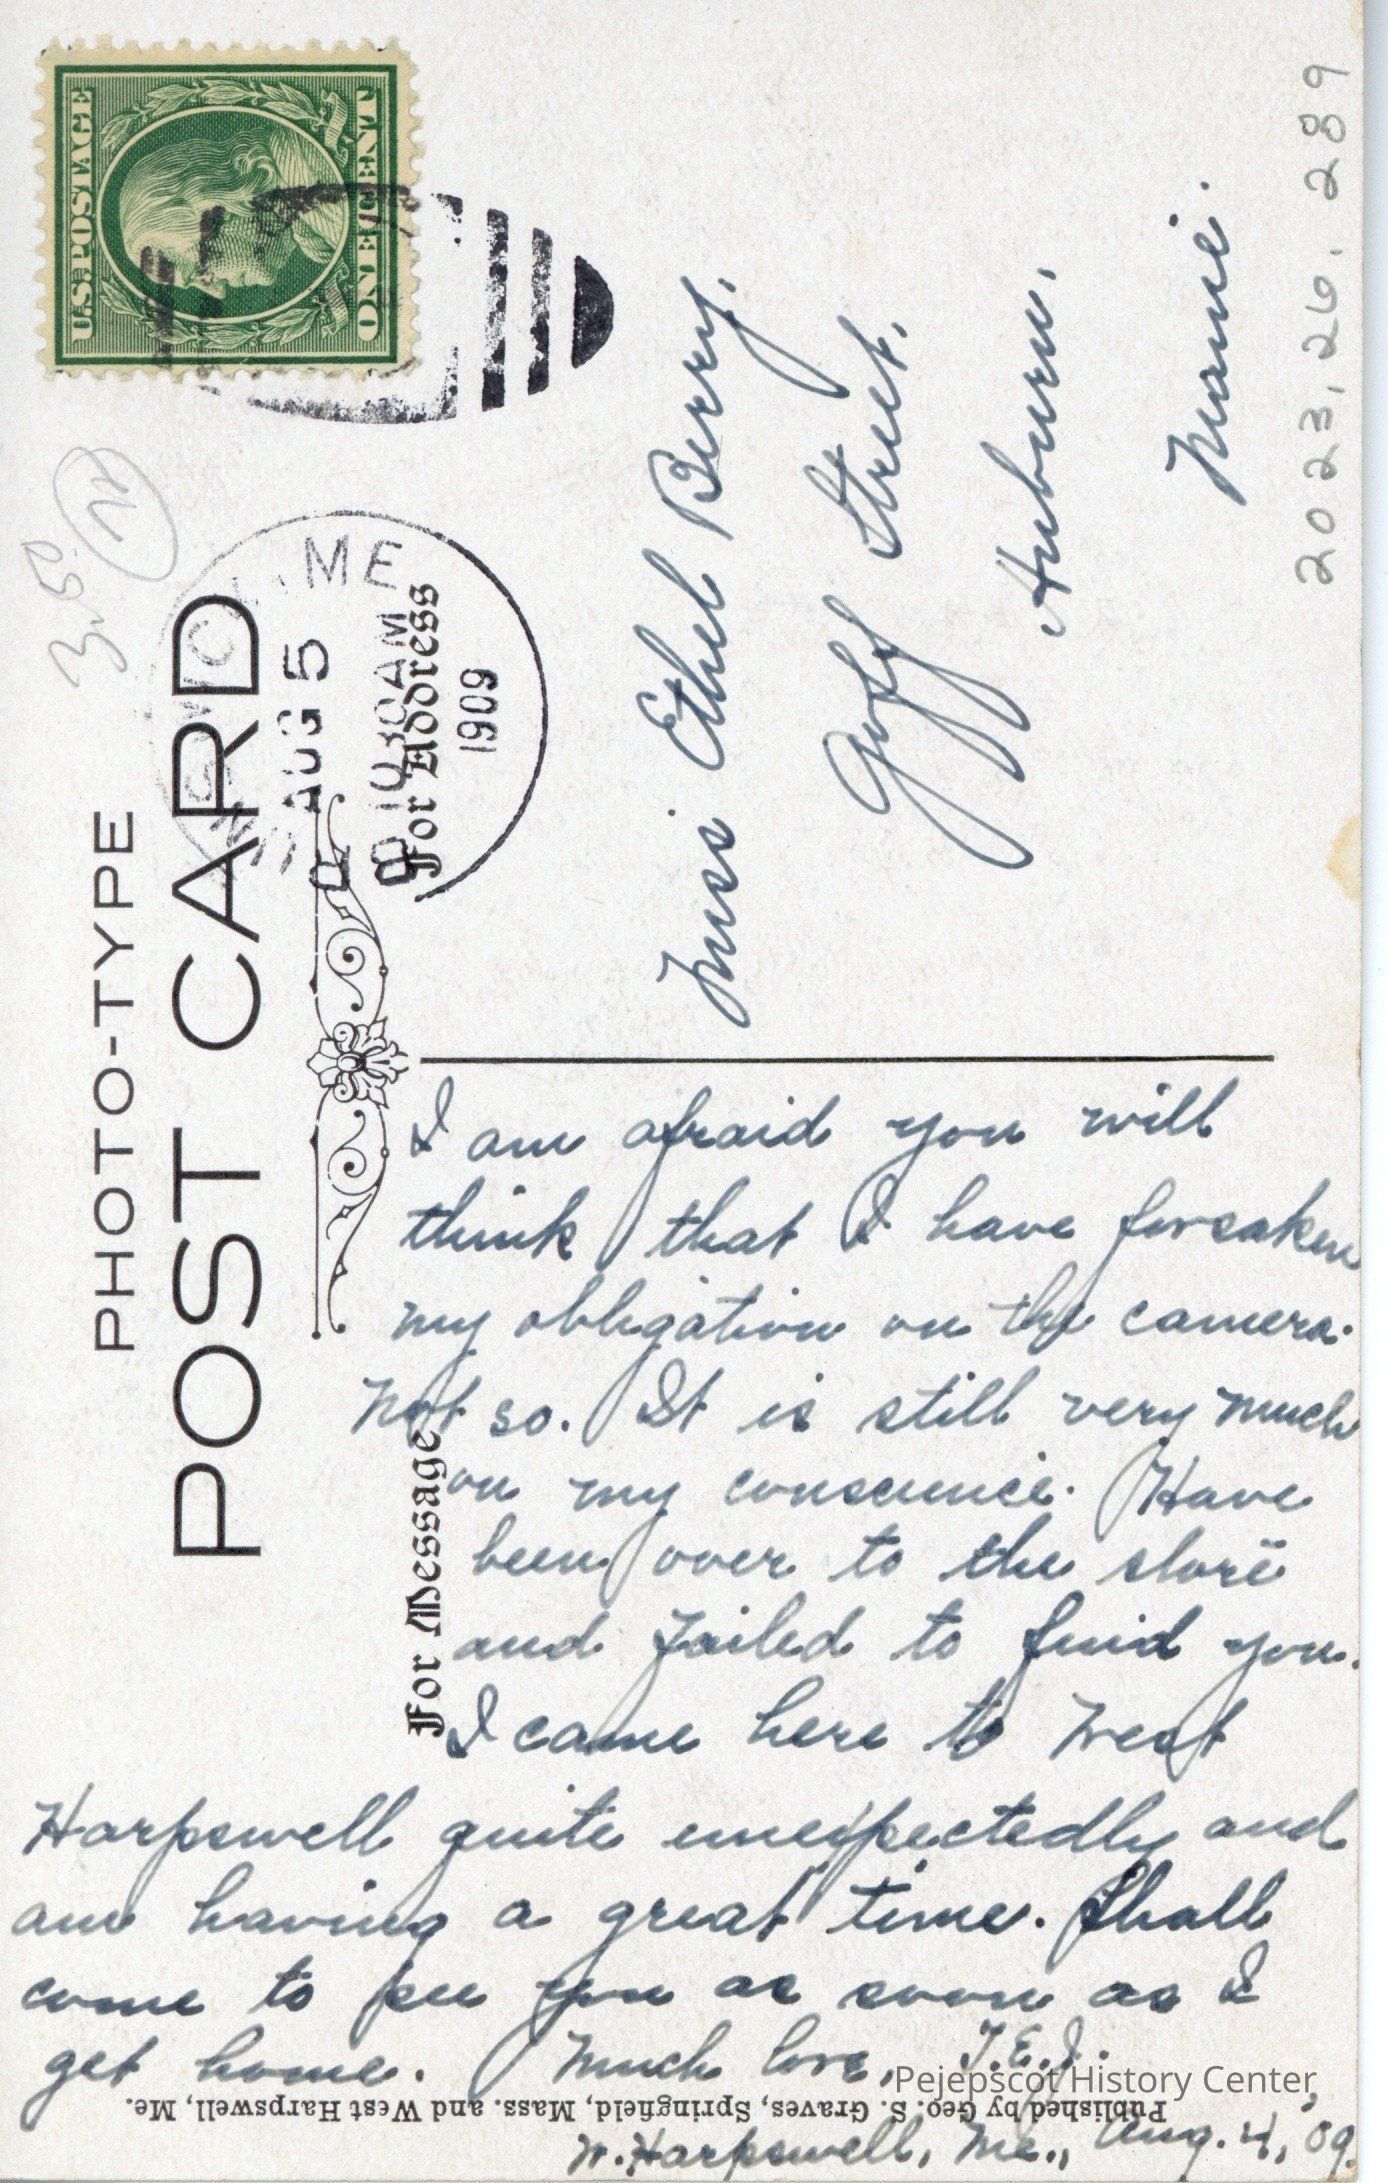 U.S. POSTAGE
ONE CENT
3.50
PHOTO-TYPE
POST CARD
For Address
ME.
AUG 5
1030AM
1909
Miss Ethel Berry.
Goff Street.
Auburn.
Maine
2023.26.289
For Message
I am afraid you will
think that I have forsaken
my obligation on the camera.
Not so. It is still very much
on my conscience. Have
been over to the store
and failed to find you.
I came here to West
Harpswell quite unexpectedly and
am having a great time. Shall
come to see you as soon as I
get home. Much love,
W. Harpswell, Me., Aug. 4, '09.
Published by Geo. S. Graves, Springfield, Mass. and West Harpswell, Me.
Pejepscot History Center